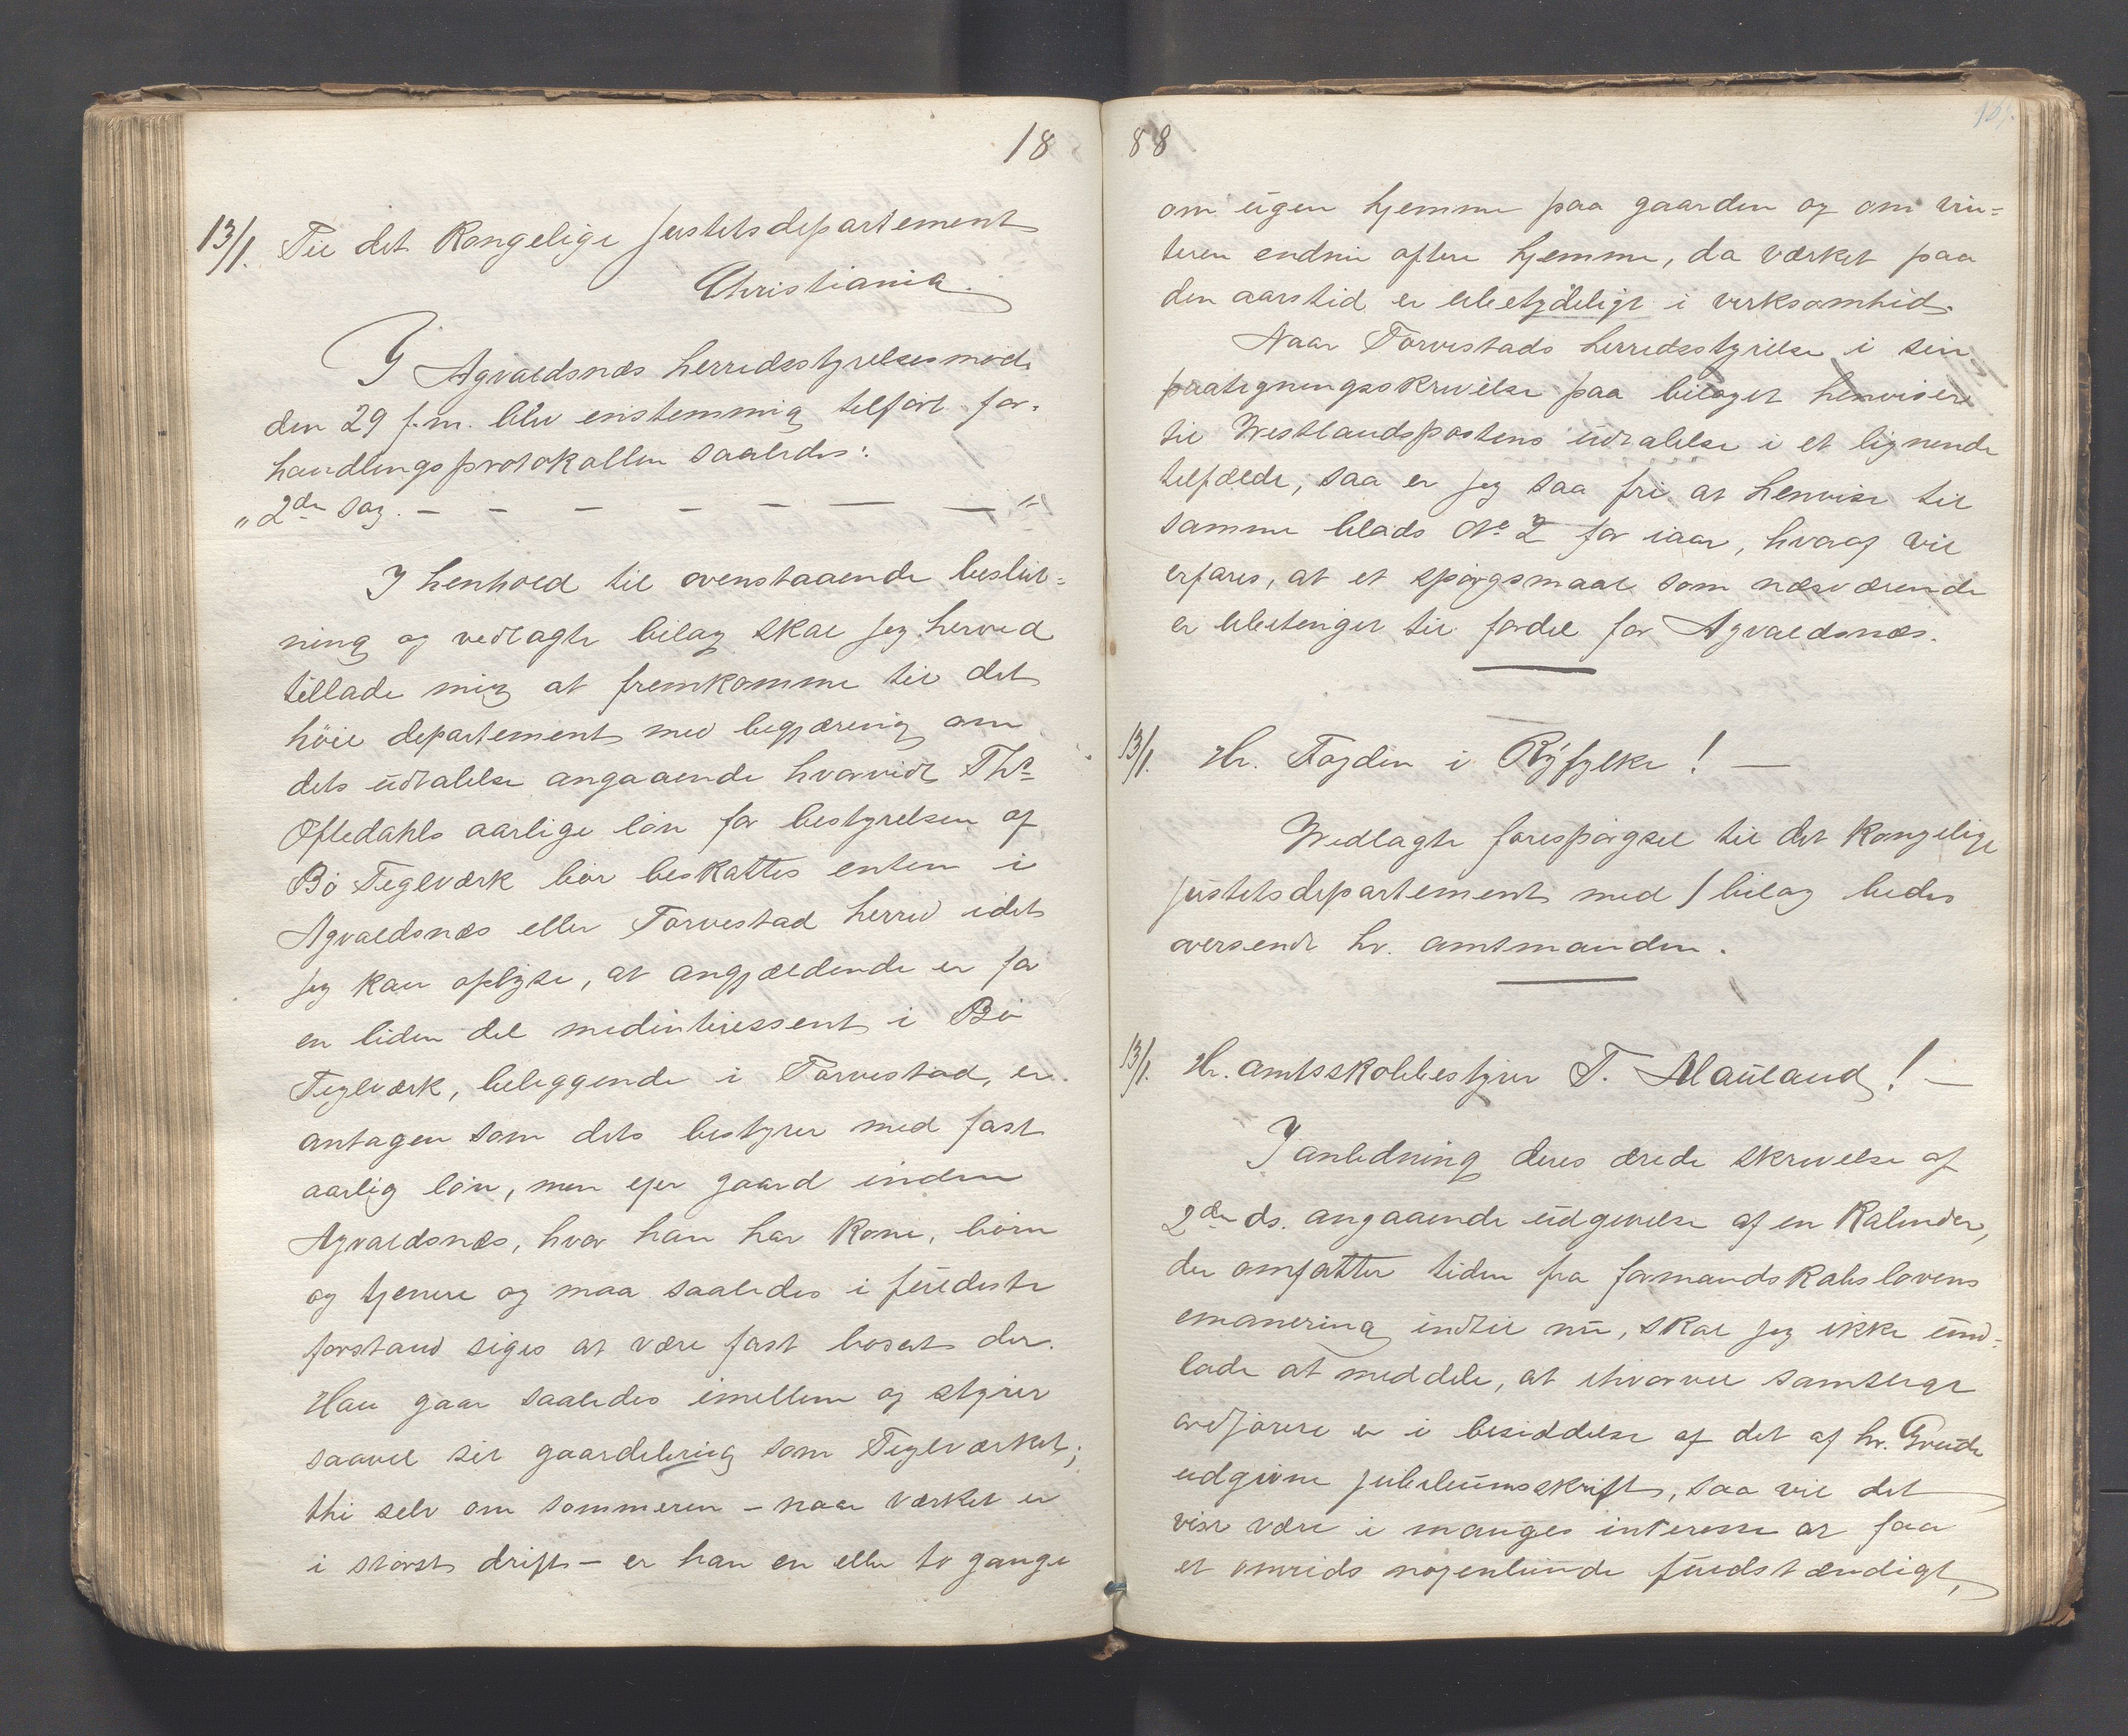 18
13/1. Til det Kongelige Justitsdepartement
Christiania.
I Agvaldsnæs herredsstyrelsesmøde
den 29 f.m. blev enstemmig tilført for-
handlingsprotokollen saaledes:
"2den sag. – – – – – – – "
I henhold til ovenstaaende beslut-
ning og vedlagte bilag skal jeg herved
tillade mig at fremkomme til det
høie departement med begjæring om
dets udtalelse angaaende hvorvidt Ths
Oftedahls aarlige løn for bestyrelsen af
Bø Teglværk bør beskattes enten i
Agvaldsnæs eller Torvestad herred idet
jeg kan oplyse, at angjældende er for
en liden del medinteressent i Bø
Teglværk, beliggende i Torvestad, er
antagen som dets bestyrer med fast
aarlig løn, men ejer gaard inden
Agvaldsnæs, hvor han har kone, børn
og tjenere og maa saaledes i fuldeste
forstand siges at være fast bosat der.
Han gaar saaledes imellem og styrer
saavel sit gaardsbrug som Teglværket;
thi selv om sommeren – naar værket er
i størst drift – er han en eller to gange
88
om ugen hjemme paa gaarden og om vin-
teren endnu oftere hjemme, da værket paa
den aarstid er ubetydeligt i virksomhed.
Naar Torvestads herredsstyrelse i sin
paategningsskrivelse paa bilaget henviser
til Westlandspostens udtalelse i et lignende
tilfælde, saa er jeg saa fri at henvise til
samme blads No 2 for iaar, hvoraf vil
erfares, at et spørgsmaal som nærværende
er ubetinget til fordel for Agvaldsnæs.
13/1. Hr. Fogden i Ryfylke! –
Vedlagte forespørgsel til det Kongelige
Justitsdepartement med 1 bilag bedes
oversendt hr. amtmanden.
13/1. Hr. amtsskolebestyrer T. Mauland! –
I anledning deres ærede skrivelse af
2den ds. angaaende udgivelse af en Kalender,
der omfatter tiden fra formandskabslovens
emanering indtil nu, skal jeg ikke und-
lade at meddele, at ihvorvel samtlige
ordførere er i besiddelse af det af hr. Grude
udgivne jubilæumsskrift, saa vil det
vist være i manges interesse at faa
et omrids nogenlunde fuldstændigt,